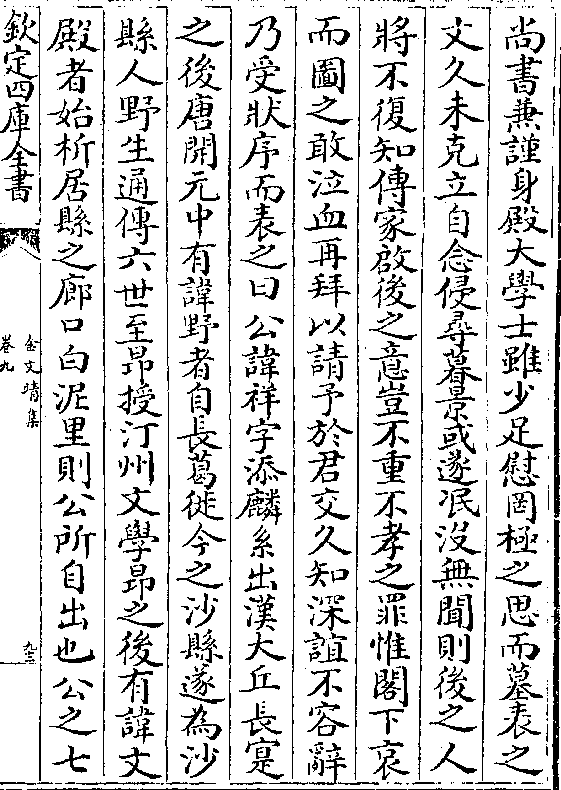 尚書兼謹身殿大學士雖少足慰罔極之思而墓表之
文久未克立自念侵尋暮景或遂泯沒無聞則後之人
將不復知傳家啟後之意豈不重不孝之罪惟閣下哀
而圖之敢泣血再拜以請予於君交久知深誼不容辭
乃受狀序而表之曰公諱祥字添麟系出漢大丘長寔
之後唐開元中有諱野者自長葛徙今之沙縣遂為沙
縣人野生通傳六世至昂授汀州文學昂之後有諱文
殿者始析居縣之廊口白泥里則公所自出也公之七
欽定四庫全書
金文靖集
卷九
九三